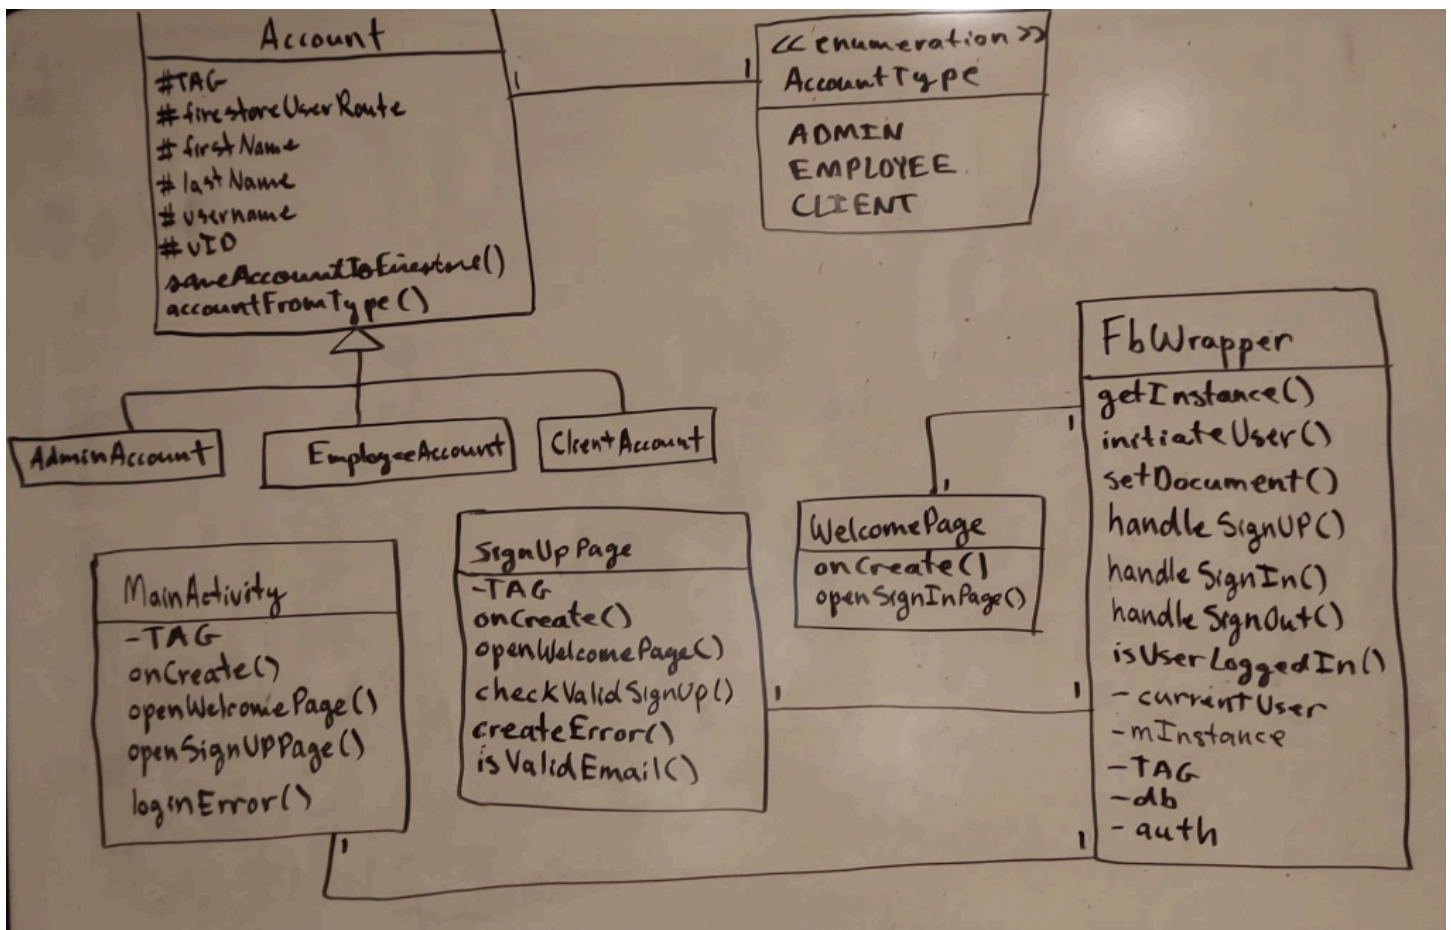 Account
#TAG
#firestoreUserRoute
#firstName
#lastName
#username
#uID
saveAccountToFirestore()
accountFromType()
1
1
<<enumeration>>
AccountType
ADMIN
EMPLOYEE
CLIENT
AdminAccount
EmployeeAccount
ClientAccount
MainActivity
-TAG
onCreate()
openWelcomePage()
openSignUPPage()
loginError()
1
SignUpPage
-TAG
onCreate()
openWelcomePage()
checkValidSignUp()
createError()
isValidEmail()
1
1
WelcomePage
onCreate()
openSignInPage()
1
1
FbWrapper
getInstance()
initiateUser()
setDocument()
handleSignUP()
handleSignIn()
handleSignOut()
isUserLoggedIn()
-currentUser
-mInstance
-TAG
-db
-auth
1